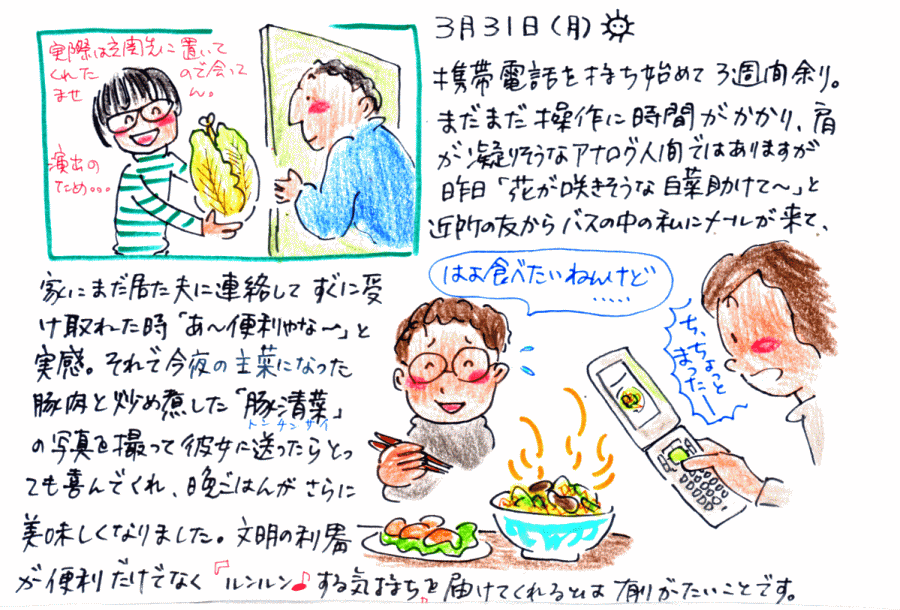 3月31日(月)
携帯電話を持ち始めて3週間余り。
まだまだ操作に時間がかかり、肩
が凝りそうなアナログ人間ではありますが
昨日「花が咲きそうな白菜助けて〜」と
近所の友からバスの中の私にメールが来て、
家にまだ居た夫に連絡してすぐに受
け取れた時「あ〜便利やな〜」と
実感。それで今夜の主菜になった
豚肉と炒め煮した「豚清菜」
トンチンサイ
の写真を撮って彼女に送ったらとっ
ても喜んでくれ、晩ごはんがさらに
美味しくなりました。文明の利器
が便利だけでなく『ルンルン♪する気持ち』を届けてくれるとは有りがたいことです。
実際は玄関先に置いて
くれたので会って
ません。
演出の
ため...
はよ食べたいねんけど
.....
ち、ちょっと
まったー